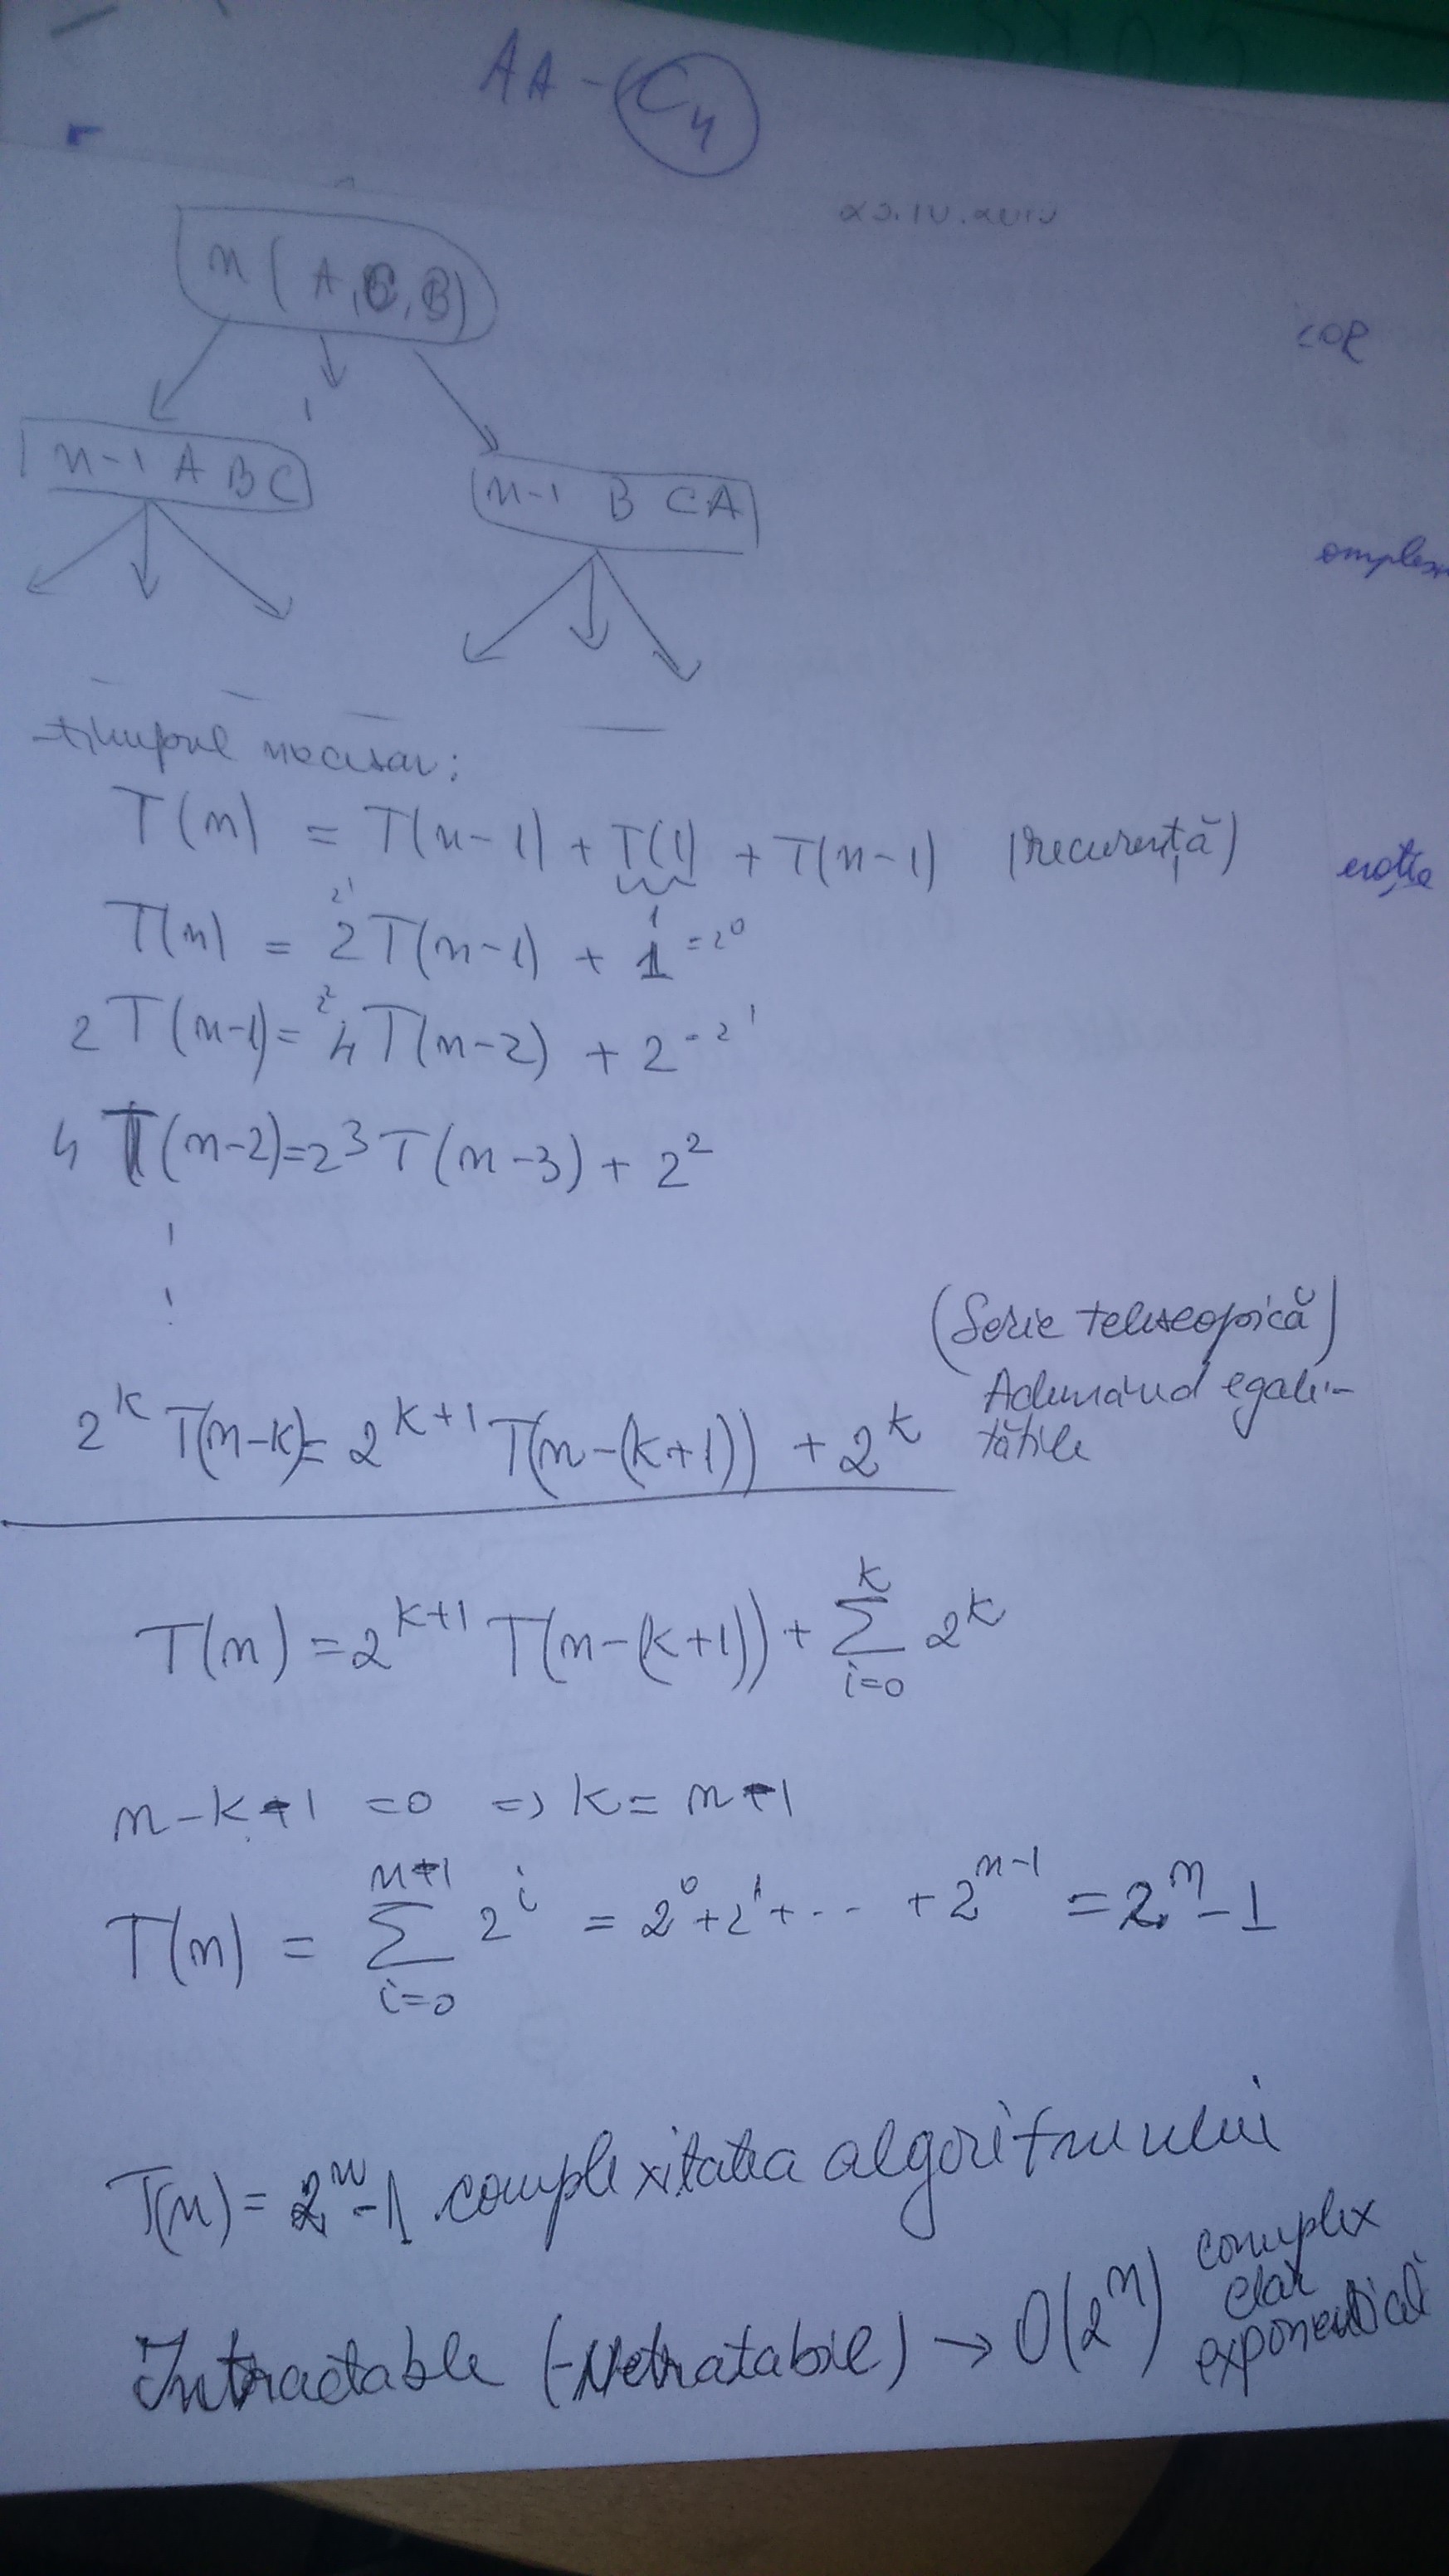 AA - C4
n (A, C, B)
n-1 A B C
n-1 B C A
timpul necesar:
T(n) = T(n-1) + T(1) + T(n-1) (recurență)
1
T(n) = 2¹ 2T(n-1) + 1 = 2⁰
2 T(n-1) = 2² 4T(n-2) + 2 = 2¹
4 T(n-2) = 2³ T(n-3) + 2²
(Serie telescopică)
Adunând egali-
tățile
2ᵏ T(n-k) = 2ᵏ⁺¹ T(n-(k+1)) + 2ᵏ
T(n) = 2ᵏ⁺¹ T(n-(k+1)) + Σ_{i=0}^{k} 2ᵏ
n-k-1 = 0 => k = n-1
T(n) = Σ_{i=0}^{n-1} 2ⁱ = 2⁰ + 2¹ + ... + 2ⁿ⁻¹ = 2ⁿ - 1
T(n) = 2ⁿ - 1 complexitatea algoritmului
Intractable (-Netratabile) → O(2ⁿ) complex
exponențial